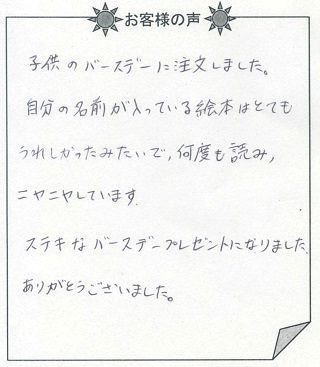 お客様の声
子供のバースデーに注文しました。
自分の名前が入っている絵本はとても
うれしかったみたいで,何度も読み,
ニヤニヤしています.
ステキなバースデープレゼントになりました.
ありがとうございました。